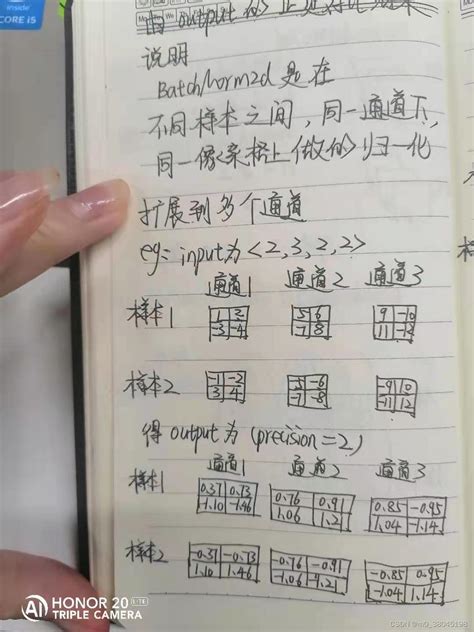 inside
CORE i5
由 output 的
说明
BatchNorm2d 是在
不同样本之间，同一通道下，
同一像素格上做的归一化
扩展到多个通道
eg: input为<2,3,2,2>
通道1 通道2 通道3
样本1
1 2 5 6 9 -10
-3 -4 7 8 11 -12
样本2
-1 -2 -5 -6 -9 10
3 4 -7 -8 -11 12
得output为 (precision=2)
通道1 通道2 通道3
样本1
0.37 0.73 0.76 0.91 0.85 -0.95
-1.10 -1.46 1.06 1.21 1.04 -1.14
样本2
-0.37 -0.73 -0.76 -0.91 -0.85 0.95
1.10 1.46 -1.06 -1.21 -1.04 1.14
HONOR 20
TRIPLE CAMERA
CSDN @m0_38045198